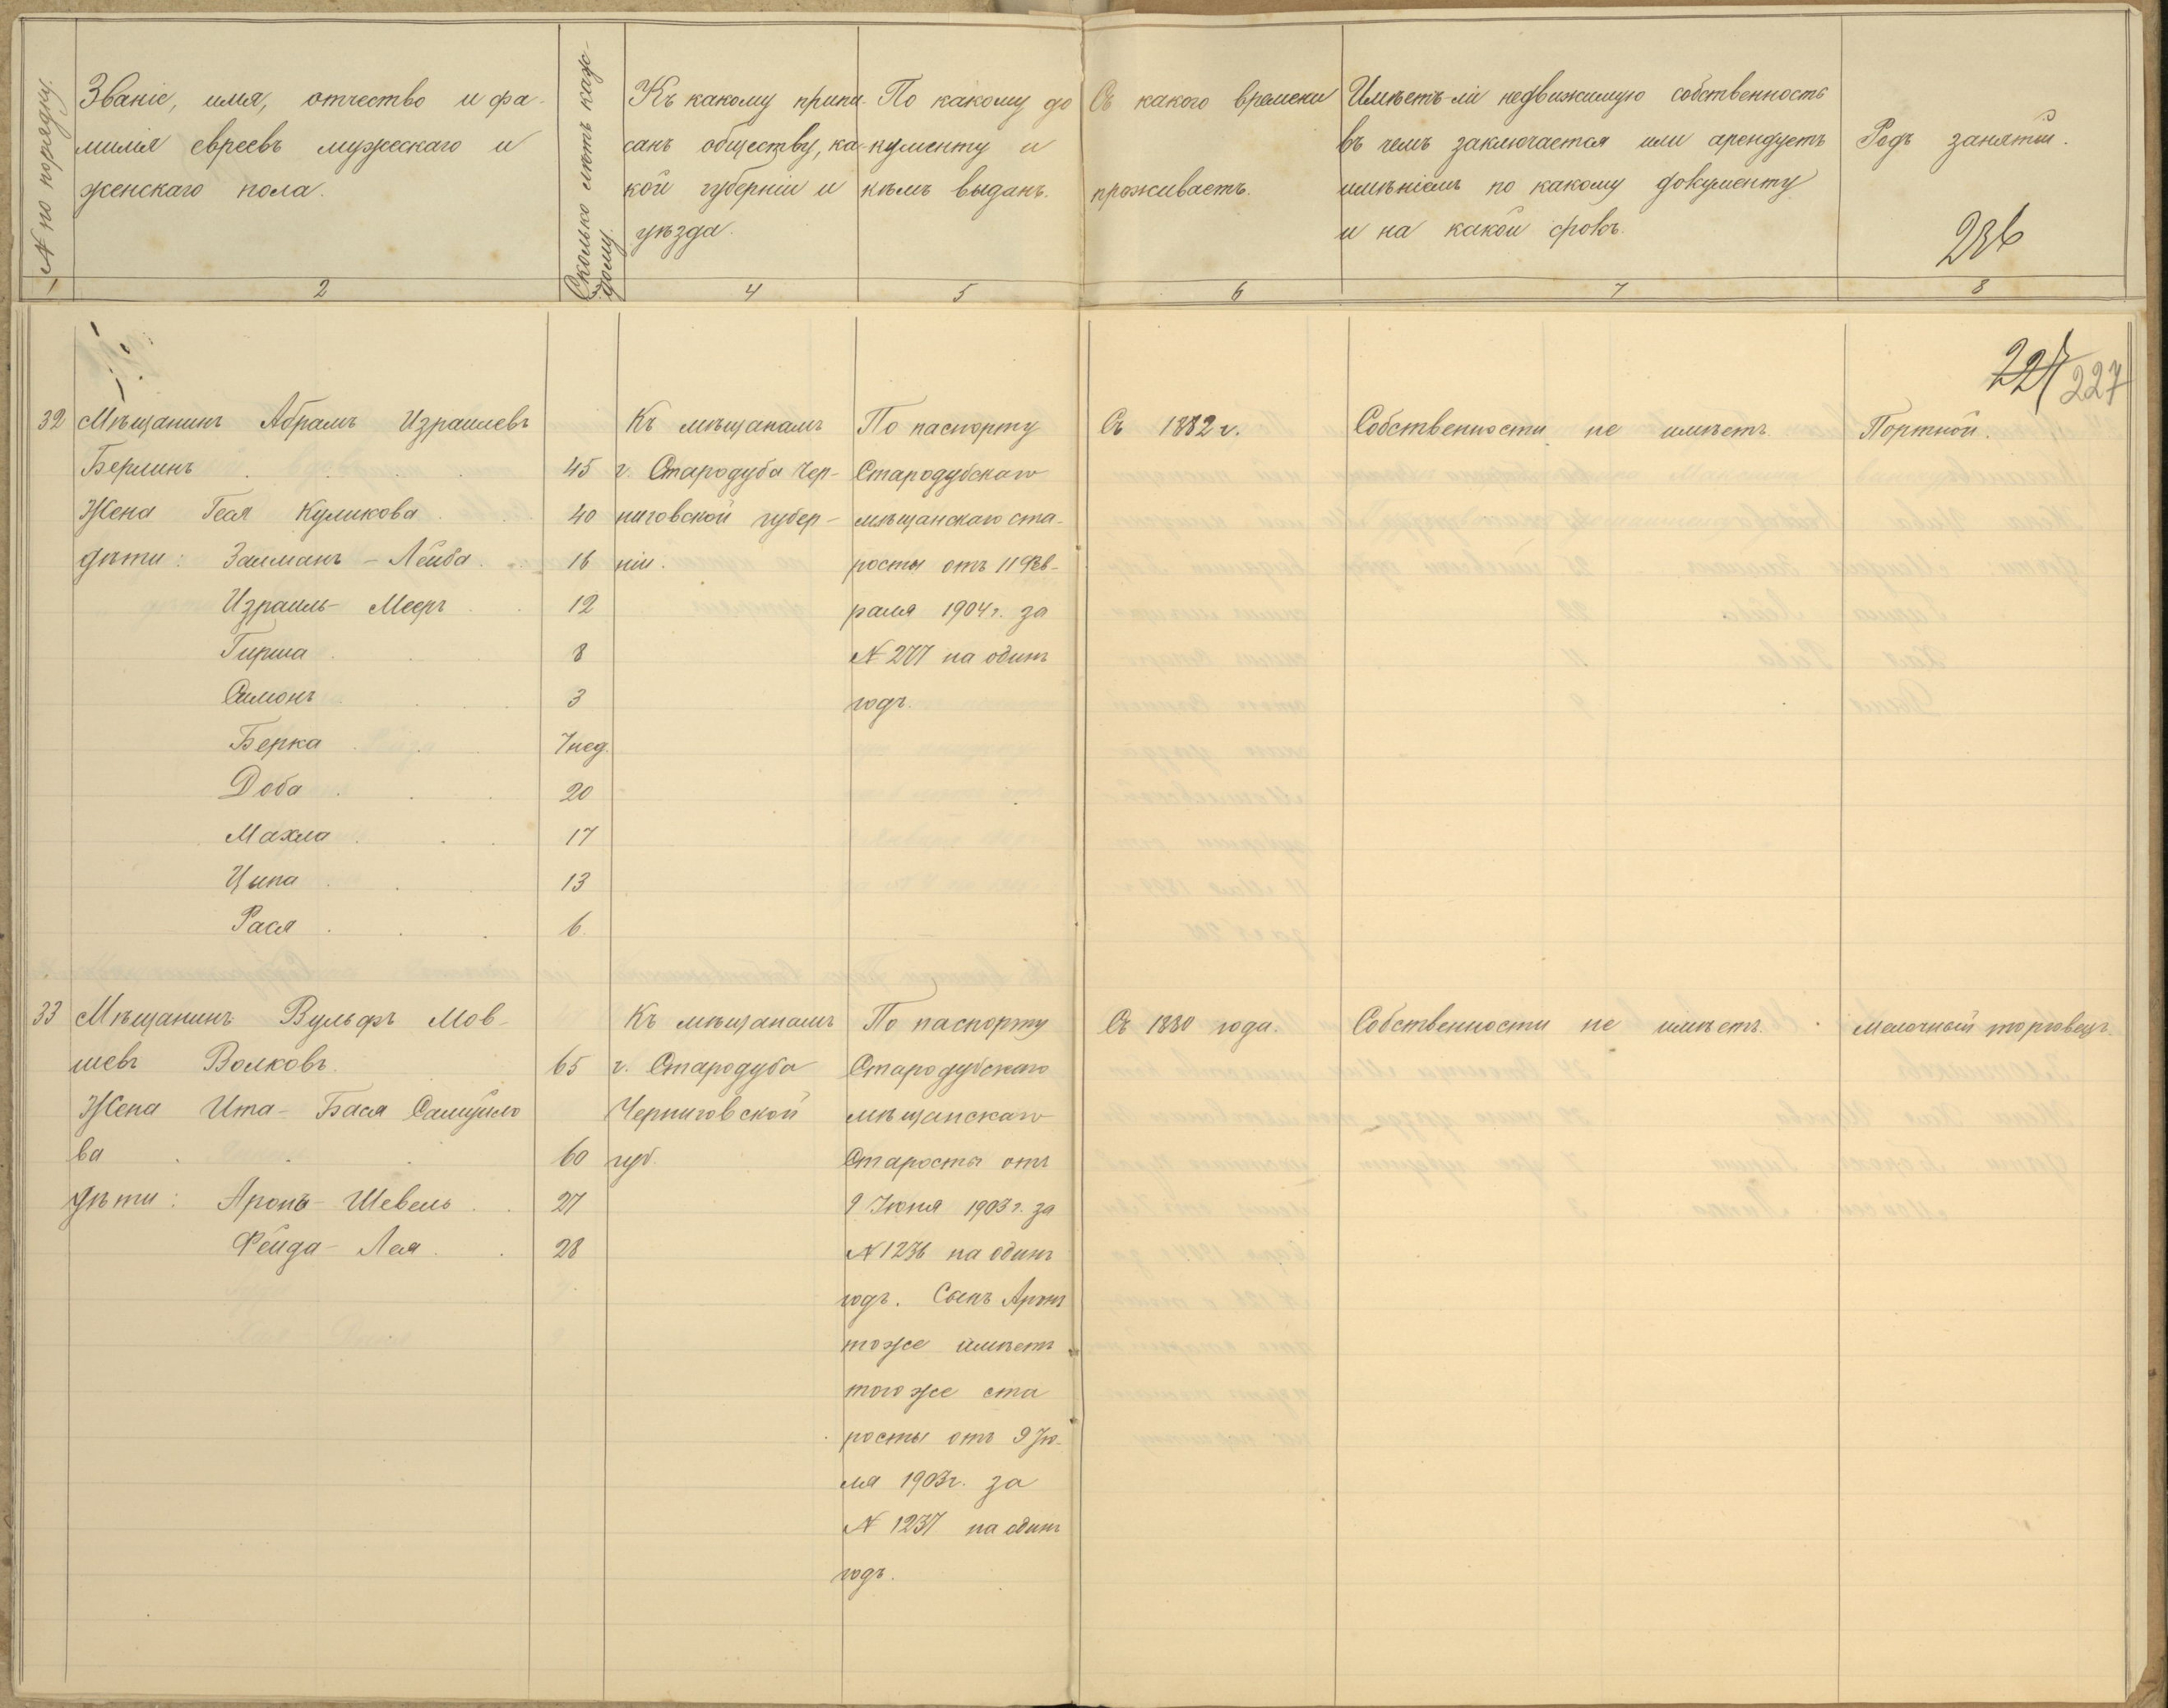 № по порядку.
Званіе, имя, отчество и фа-
милія евреевъ мужескаго и
женскаго пола.
Сколько лѣтъ каж-
дому.
Къ какому припи-
санъ обществу, ка-
кой губерніи и
уѣзда.
По какому до
кументу и
кѣмъ выданъ.
Съ какого времени
проживаетъ.
Имѣетъ ли недвижимую собственность
въ чемъ заключается или арендуетъ
имѣніемъ по какому документу
и на какой срокъ.
Родъ занятій.
236
1 2 3 4 5 6 7 8
227
32 Мѣщанинъ Абрамъ Израилевъ
Берлинъ 45
Жена Геся Куликова 40
дѣти: Залманъ-Лейба 16
Израиль-Мееръ 12
Гирша 8
Симонъ 3
Берка 7 нед.
Доба 20
Махла 17
Цыпа 13
Рася 6
Къ мѣщанамъ
г. Стародуба Чер-
ниговской губер-
ніи.
По паспорту
Стародубскаго
мѣщанскаго ста-
росты отъ 11 Фев-
раля 1904 г. за
№ 277 на одинъ
годъ.
Съ 1882 г.
Собственности не имѣетъ.
Портной.
33 Мѣщанинъ Вульфъ Мов-
шевъ Волковъ 65
Жена Ита-Бася Самуйло
ва 60
дѣти: Аронъ-Шевель 27
Фейда-Лея 28
Къ мѣщанамъ
г. Стародуба
Черниговской
губ.
По паспорту
Стародубскаго
мѣщанскаго
Старосты отъ
9 Іюня 1903 г. за
№ 1236 на одинъ
годъ. Сынъ Аронъ
тоже имѣетъ
того же ста
росты отъ 9 Ію-
ля 1903 г. за
№ 1237 на одинъ
годъ.
Съ 1880 года.
Собственности не имѣетъ.
Мелочный торговецъ.